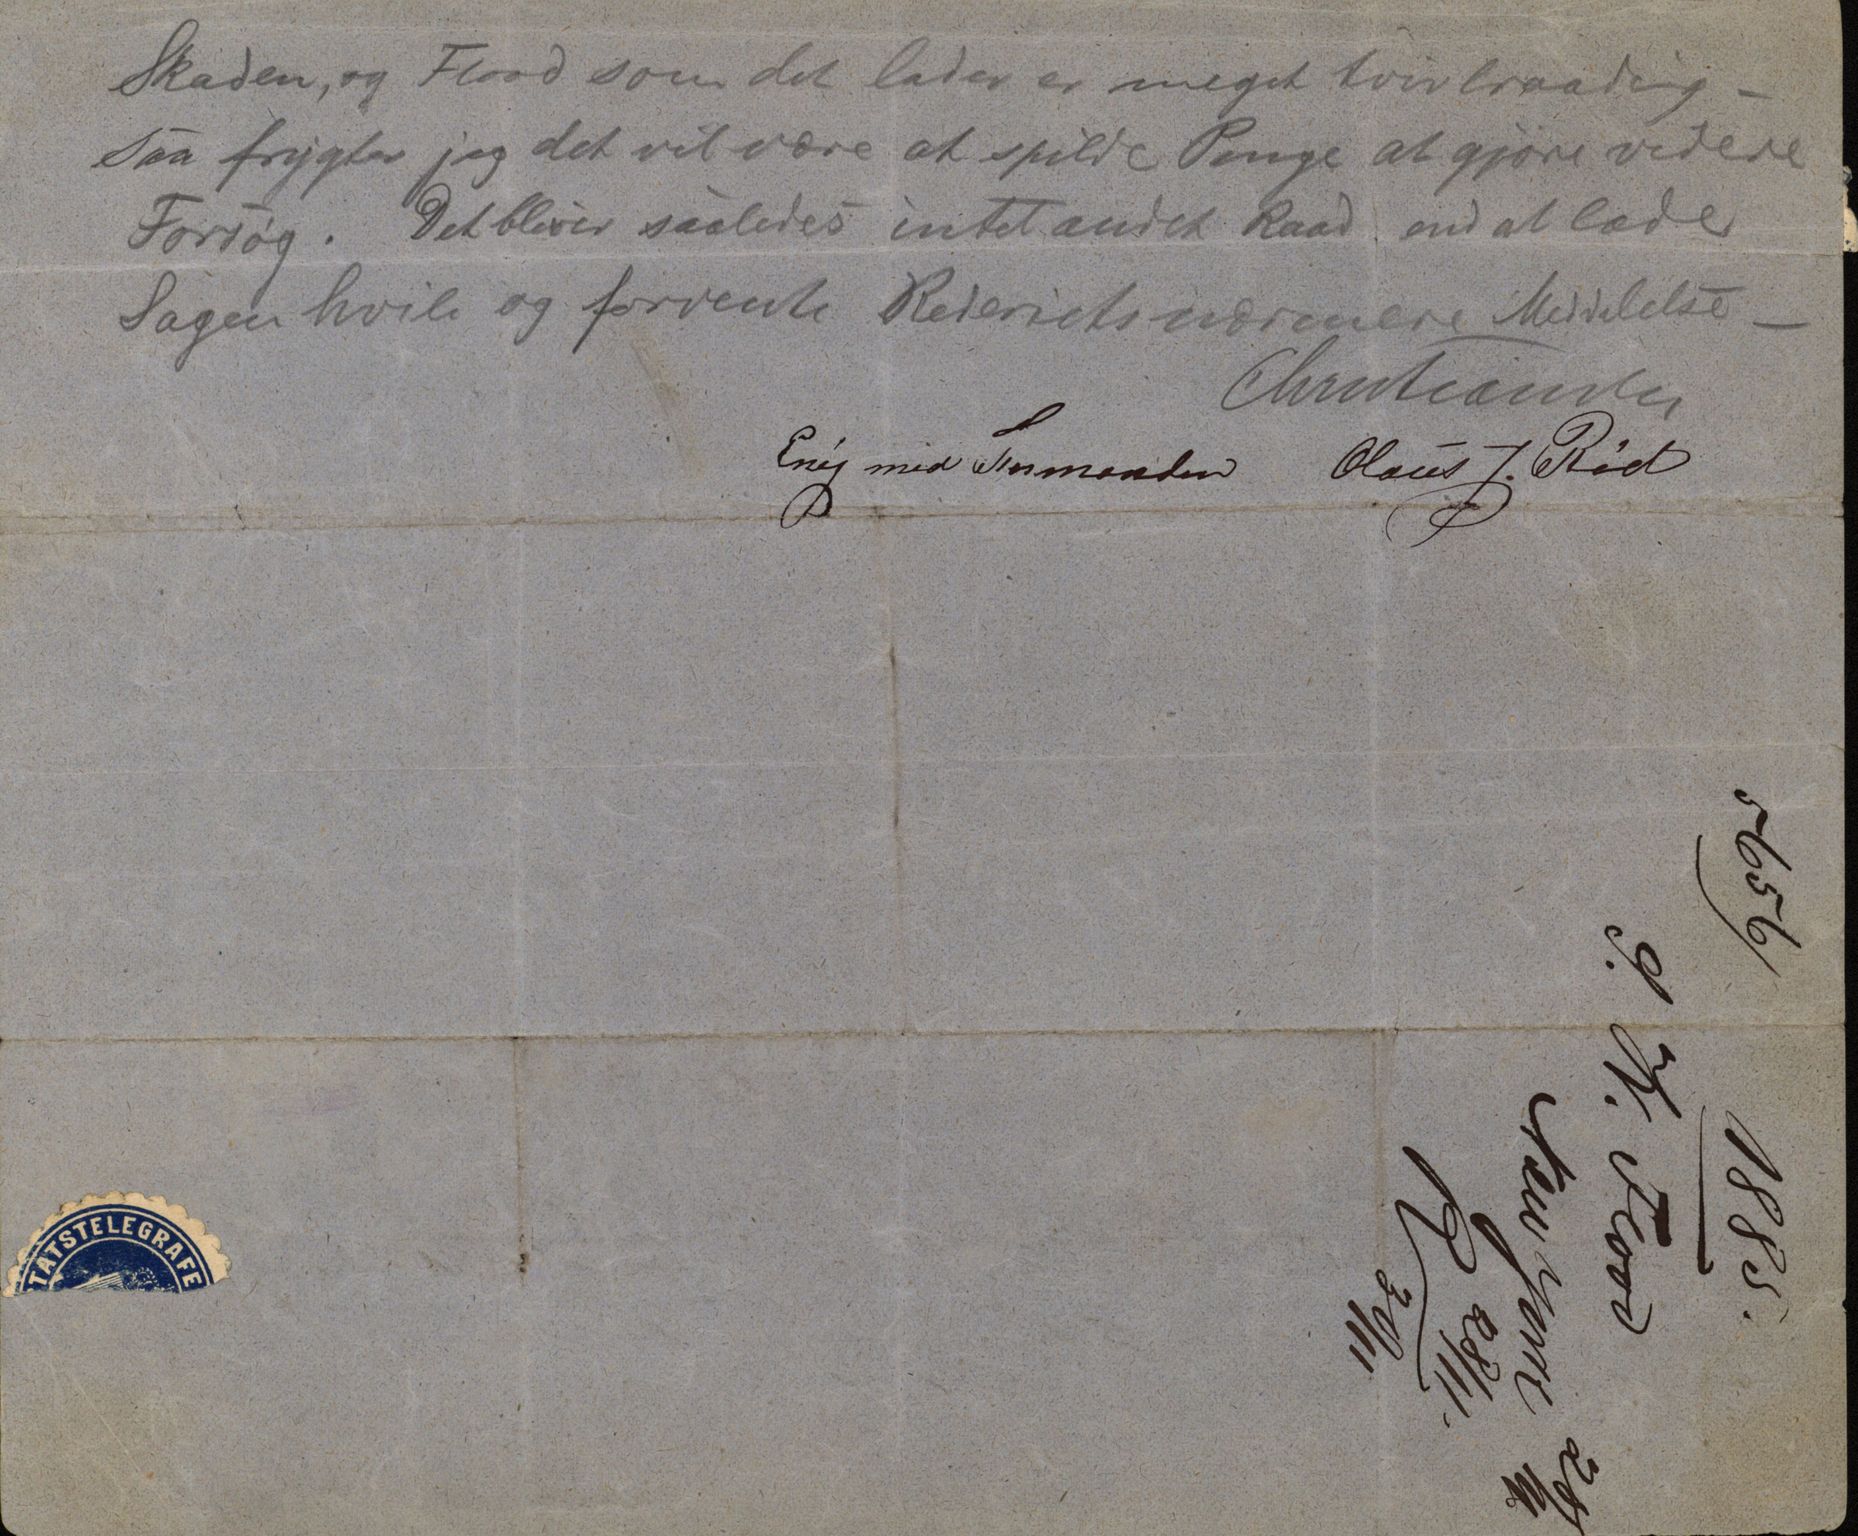 Skaden, og Flood som det lader er meget tvivlraadig —
saa frygter jeg det vil være at spilde Penge at gjøre videre
Forsøg. Det bliver saaledes intet andet Raad end at lade
Sagen hvile og forvente Rederiets nærmere Meddelelse —
Christiansen
Enig med Formanden Olaus J. Rød
5656
1885.
S. H. Flood
New York 28/11
R 28/11.
30/11
TATSTELEGRAFE